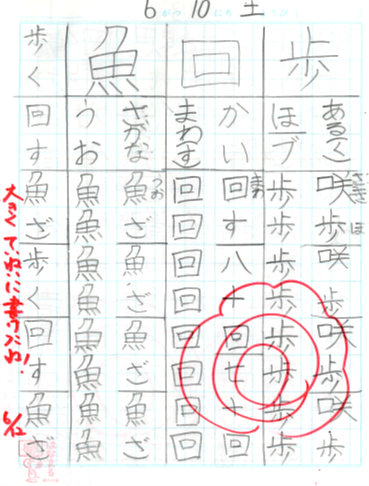 6がつ10にち土ようび
歩
あるく)咲歩咲歩咲歩咲歩
さき ほ
ほブ歩歩歩歩歩歩歩歩
回
かい回す八十回七十回
まわ
まわ(す)回回回回回回回回
魚
さかな魚ざ魚ざ魚ざ魚ざ
うお
うお魚魚魚魚魚魚魚魚
歩く回す魚ざ歩く回す魚ざ
大きくていねいに書こうね!
6/12